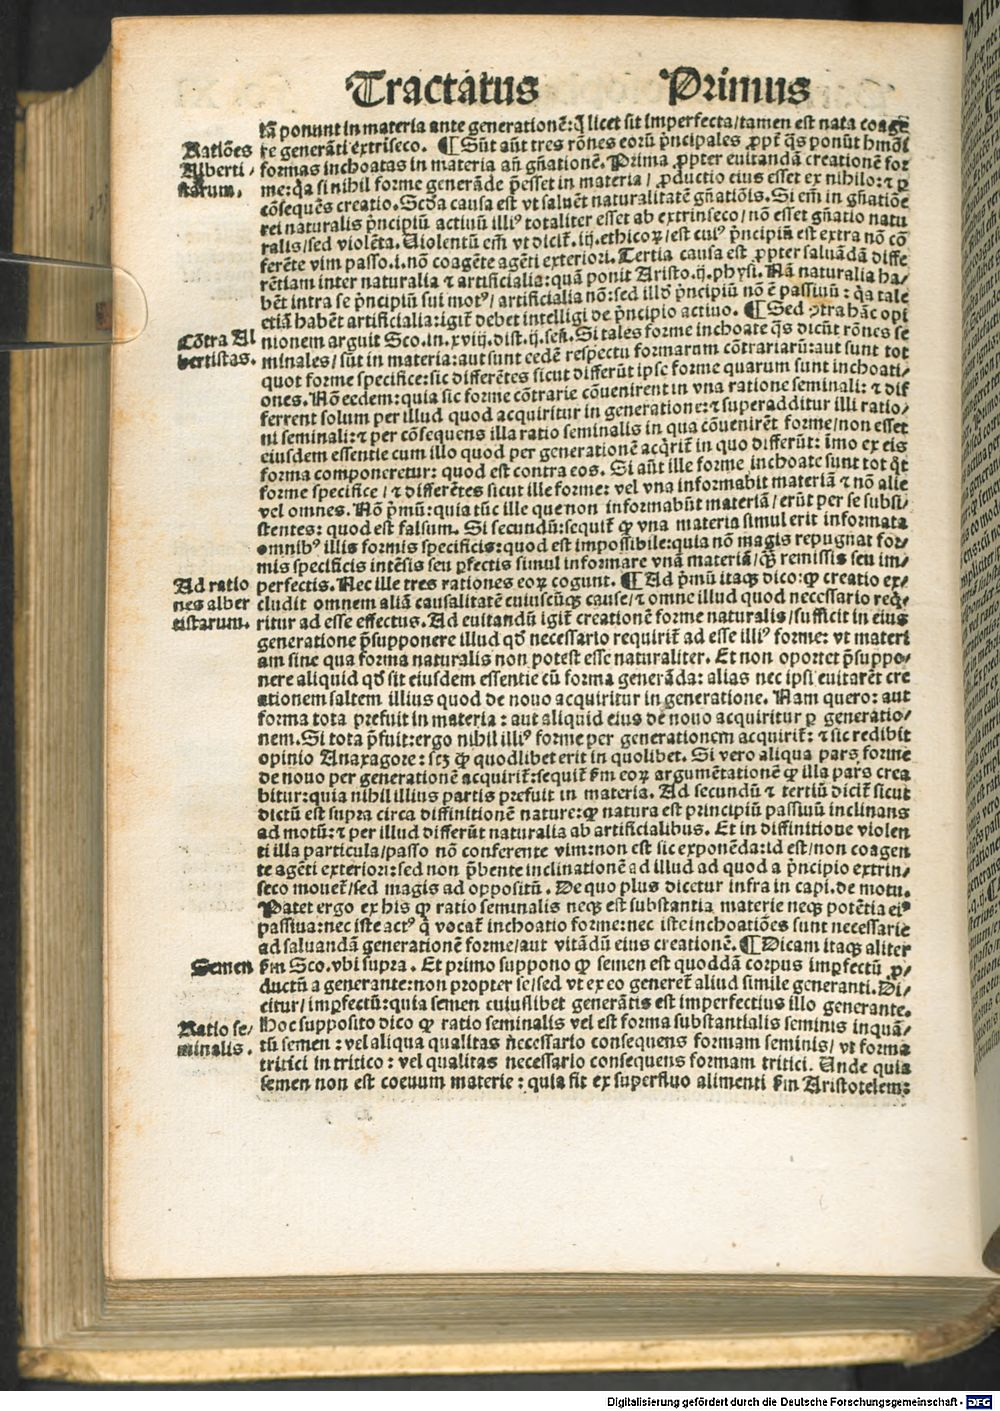 Tractatus Primus
tā ponunt in materia ante generationē: q̄ licet sit imperfecta/tamen est nata coage
re generāti extriseco. ¶ Sūt aūt tres rōnes eorū p̄ncipales ꝓpt̄ q̄s ponūt hmōi
Ratiōes
Alberti/
starum.
formas inchoatas in materia añ gñationē. Prima ꝓpter euitandā creationē for
me: q̄a si nihil forme generāde p̄esset in materia/ ꝓductio eius esset ex nihilo: ⁊ ꝑ
cōsequēs creatio. Scd̄a causa est vt saluēt naturalitatē gñatiōis. Si em̄ in gñatiōe
rei naturalis p̄ncipiū actiuū illiꝰ totaliter esset ab extrinseco/ nō esset gñatio natu
ralis/sed violēta. Uiolentū em̄ vt dicit̄. iij. ethicoꝝ/est cuiꝰ p̄ncipiū est extra nō cō
ferēte vim passo. i. nō coagēte agēti exteriori. Tertia causa est ꝓpter saluādā diffe
rētiam inter naturalia ⁊ artificialia: quā ponit Aristo. ij. physi. Nā naturalia ha/
bēt intra se p̄ncipiū sui motꝰ/ artificialia nō: sed illd̄ p̄ncipiū nō ē passiuū: q̄a tale
etiā habēt artificialia: igit̄ debet intelligi de p̄ncipio actiuo. ¶ Sed ꝯtra hāc opi
Cōtra Al
bertistas.
nionem arguit Sco. in. xviij. dist. ij. sen̄. Si tales forme inchoate q̄s dicūt rōnes se
minales/ sūt in materia: aut sunt eedē respectu formarum cōtrariarū: aut sunt tot
quot forme specifice: sic differētes sicut differūt ipse forme quarum sunt inchoati/
ones. Nō eedem: quia sic forme cōtrarie cōuenirent in vna ratione seminali: ⁊ dif
ferrent solum per illud quod acquiritur in generatione: ⁊ superadditur illi ratio/
ni seminali: ⁊ per cōsequens illa ratio seminalis in qua cōuenirēt forme/non esset
eiusdem essentie cum illo quod per generationē acq̄rit̄ in quo differūt: īmo ex eis
forma componeretur: quod est contra eos. Si aūt ille forme inchoate sunt tot q̄t
forme specifice/ ⁊ differētes sicut ille forme: vel vna informabit materiā ⁊ nō alie
vel omnes. Nō p̄mū: quia tūc ille que non informabūt materiā/ erūt per se subsi/
stentes: quod est falsum. Si secundū: sequit̄ ꝙ vna materia simul erit informata
omnibꝰ illis formis specificis: quod est impossibile: quia nō magis repugnat for/
mis specificis intēsis seu ꝑfectis simul informare vnā materiā/ q̄ꝫ remissis seu im/
Ad ratio
nes alber
tistarum.
perfectis. Nec ille tres rationes eoꝝ cogunt. ¶ Ad p̄mū itaqꝫ dico: ꝙ creatio ex/
cludit omnem aliā causalitatē cuiuscūqꝫ cause/ ⁊ omne illud quod necessario req̄/
ritur ad esse effectus. Ad euitandū igit̄ creationē forme naturalis/sufficit in eius
generatione p̄supponere illud qd̄ necessario requirit̄ ad esse illiꝰ forme: vt materi
am sine qua forma naturalis non potest esse naturaliter. Et non oportet p̄suppo/
nere aliquid qd̄ sit eiusdem essentie cū forma generāda: alias nec ipsi euitarēt cre
ationem saltem illius quod de nouo acquiritur in generatione. Nam quero: aut
forma tota prefuit in materia: aut aliquid eius de nouo acquiritur ꝑ generatio/
nem. Si tota p̄fuit: ergo nihil illiꝰ forme per generationem acquirit̄: ⁊ sic redibit
opinio Anaxagore: scꝫ ꝙ quodlibet erit in quolibet. Si vero aliqua pars forme
de nouo per generationē acquirit̄: sequit̄ ẜm eoꝝ argumētationē ꝙ illa pars crea
bitur: quia nihil illius partis prefuit in materia. Ad secundū ⁊ tertiū dicit̄ sicut
dictū est supra circa diffinitionē nature: ꝙ natura est principiū passiuū inclinans
ad motū: ⁊ per illud differūt naturalia ab artificialibus. Et in diffinitione violen
ti illa particula/passo nō conferente vim: non est sic exponēda: id est/ non coagen
te agēti exteriori: sed non p̄bente inclinationē ad illud ad quod a p̄ncipio extrin/
seco mouet̄/sed magis ad oppositū. De quo plus dicetur infra in capi. de motu.
Patet ergo ex his ꝙ ratio seminalis neqꝫ est substantia materie neqꝫ potētia eiꝰ
passiua: nec iste actꝰ q̄ vocat̄ inchoatio forme: nec iste inchoatiōes sunt necessarie
ad saluandā generationē forme/aut vitādū eius creationē. ¶ Dicam itaqꝫ aliter
Semen
ẜm Sco. vbi supra. Et primo suppono ꝙ semen est quoddā corpus imꝑfectū ꝓ/
ductū a generante: non propter se/sed vt ex eo generet̄ aliud simile generanti. Di/
citur/ imꝑfectū: quia semen cuiuslibet generātis est imperfectius illo generante.
Ratio se/
minalis.
Hoc supposito dico ꝙ ratio seminalis vel est forma substantialis seminis inquā/
tū semen: vel aliqua qualitas necessario consequens formam seminis/ vt forma
tritici in tritico: vel qualitas necessario consequens formam tritici. Unde quia
semen non est coeuum materie: quia fit ex superfluo alimenti ẜm Aristotelem:
Digitalisierung gefördert durch die Deutsche Forschungsgemeinschaft - DFG